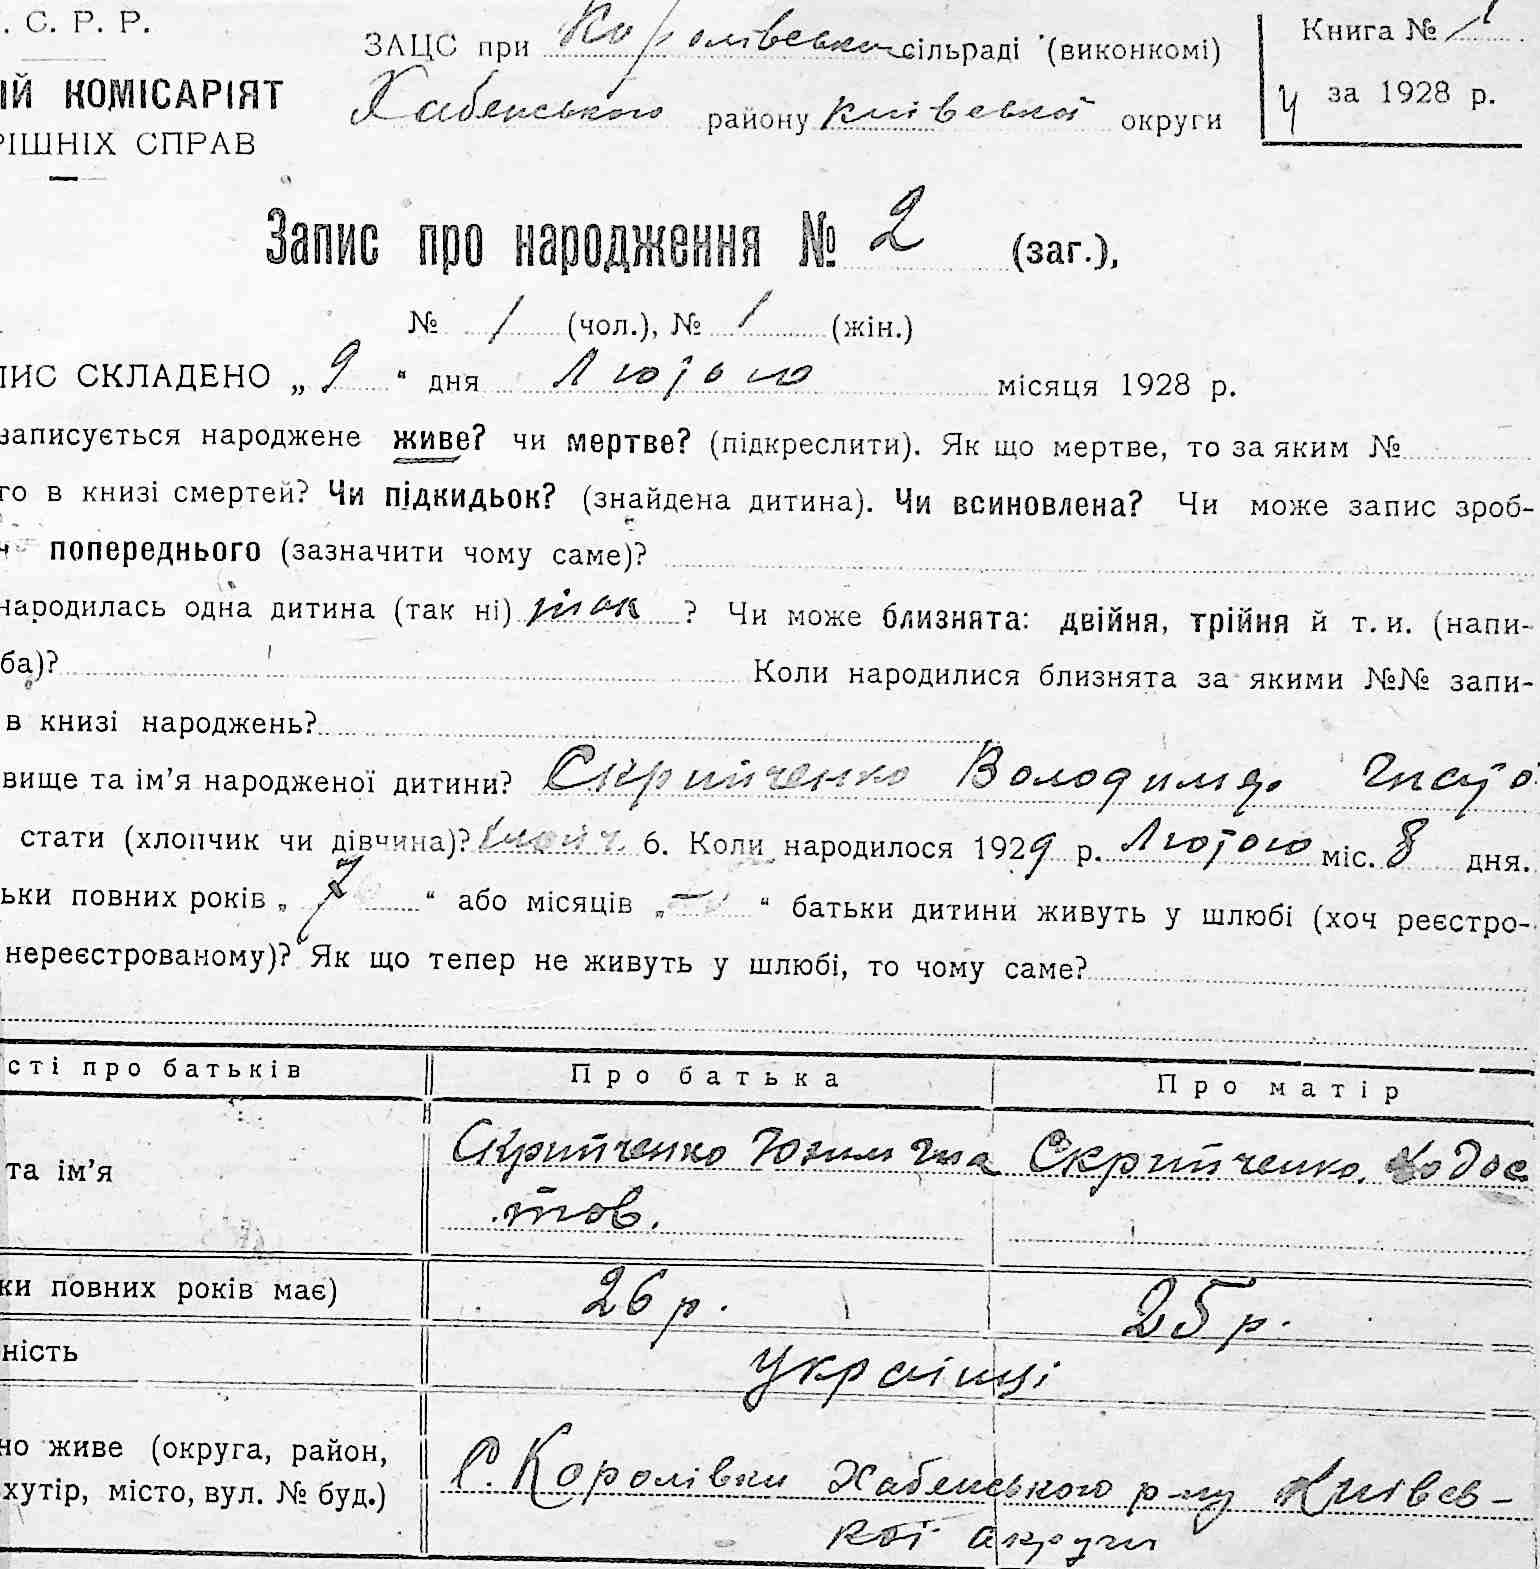 . С. Р. Р.
ЗАЦС при Королівській сільраді (виконкомі)
Книга № 1
ІЙ КОМІСАРІЯТ
Хабенського району Київської округи
за 1928 р.
РІШНІХ СПРАВ
Запис про народження № 2 (заг.),
№ 1 (чол.), № 1 (жін.)
ПИС СКЛАДЕНО „ 9 “ дня Лютого місяця 1928 р.
записується народжене живе? чи мертве? (підкреслити). Як що мертве, то за яким №
го в книзі смертей? Чи підкидьок? (знайдена дитина). Чи всиновлена? Чи може запис зроб-
попереднього (зазначити чому саме)?
народилась одна дитина (так ні) так ? Чи може близнята: двійня, трійня й т. и. (напи-
ба)? Коли народилися близнята за якими №№ запи-
в книзі народжень?
вище та ім’я народженої дитини? Скрипченко Володимир
стати (хлопчик чи дівчина)? 6. Коли народилося 1929 р. Лютого міс. 8 дня.
ьки повних років „ 7 “ або місяців „ — “ батьки дитини живуть у шлюбі (хоч реєстро-
нереєстрованому)? Як що тепер не живуть у шлюбі, то чому саме?
сті про батьків Про батька Про матір
та ім’я Скрипченко Юхим Гна Скрипченко Ходос
тов.
ки повних років має) 26 р. 25 р.
ність українці
но живе (округа, район, С. Королівки Хабенського р-ну Київсь-
хутір, місто, вул. № буд.) кої округи